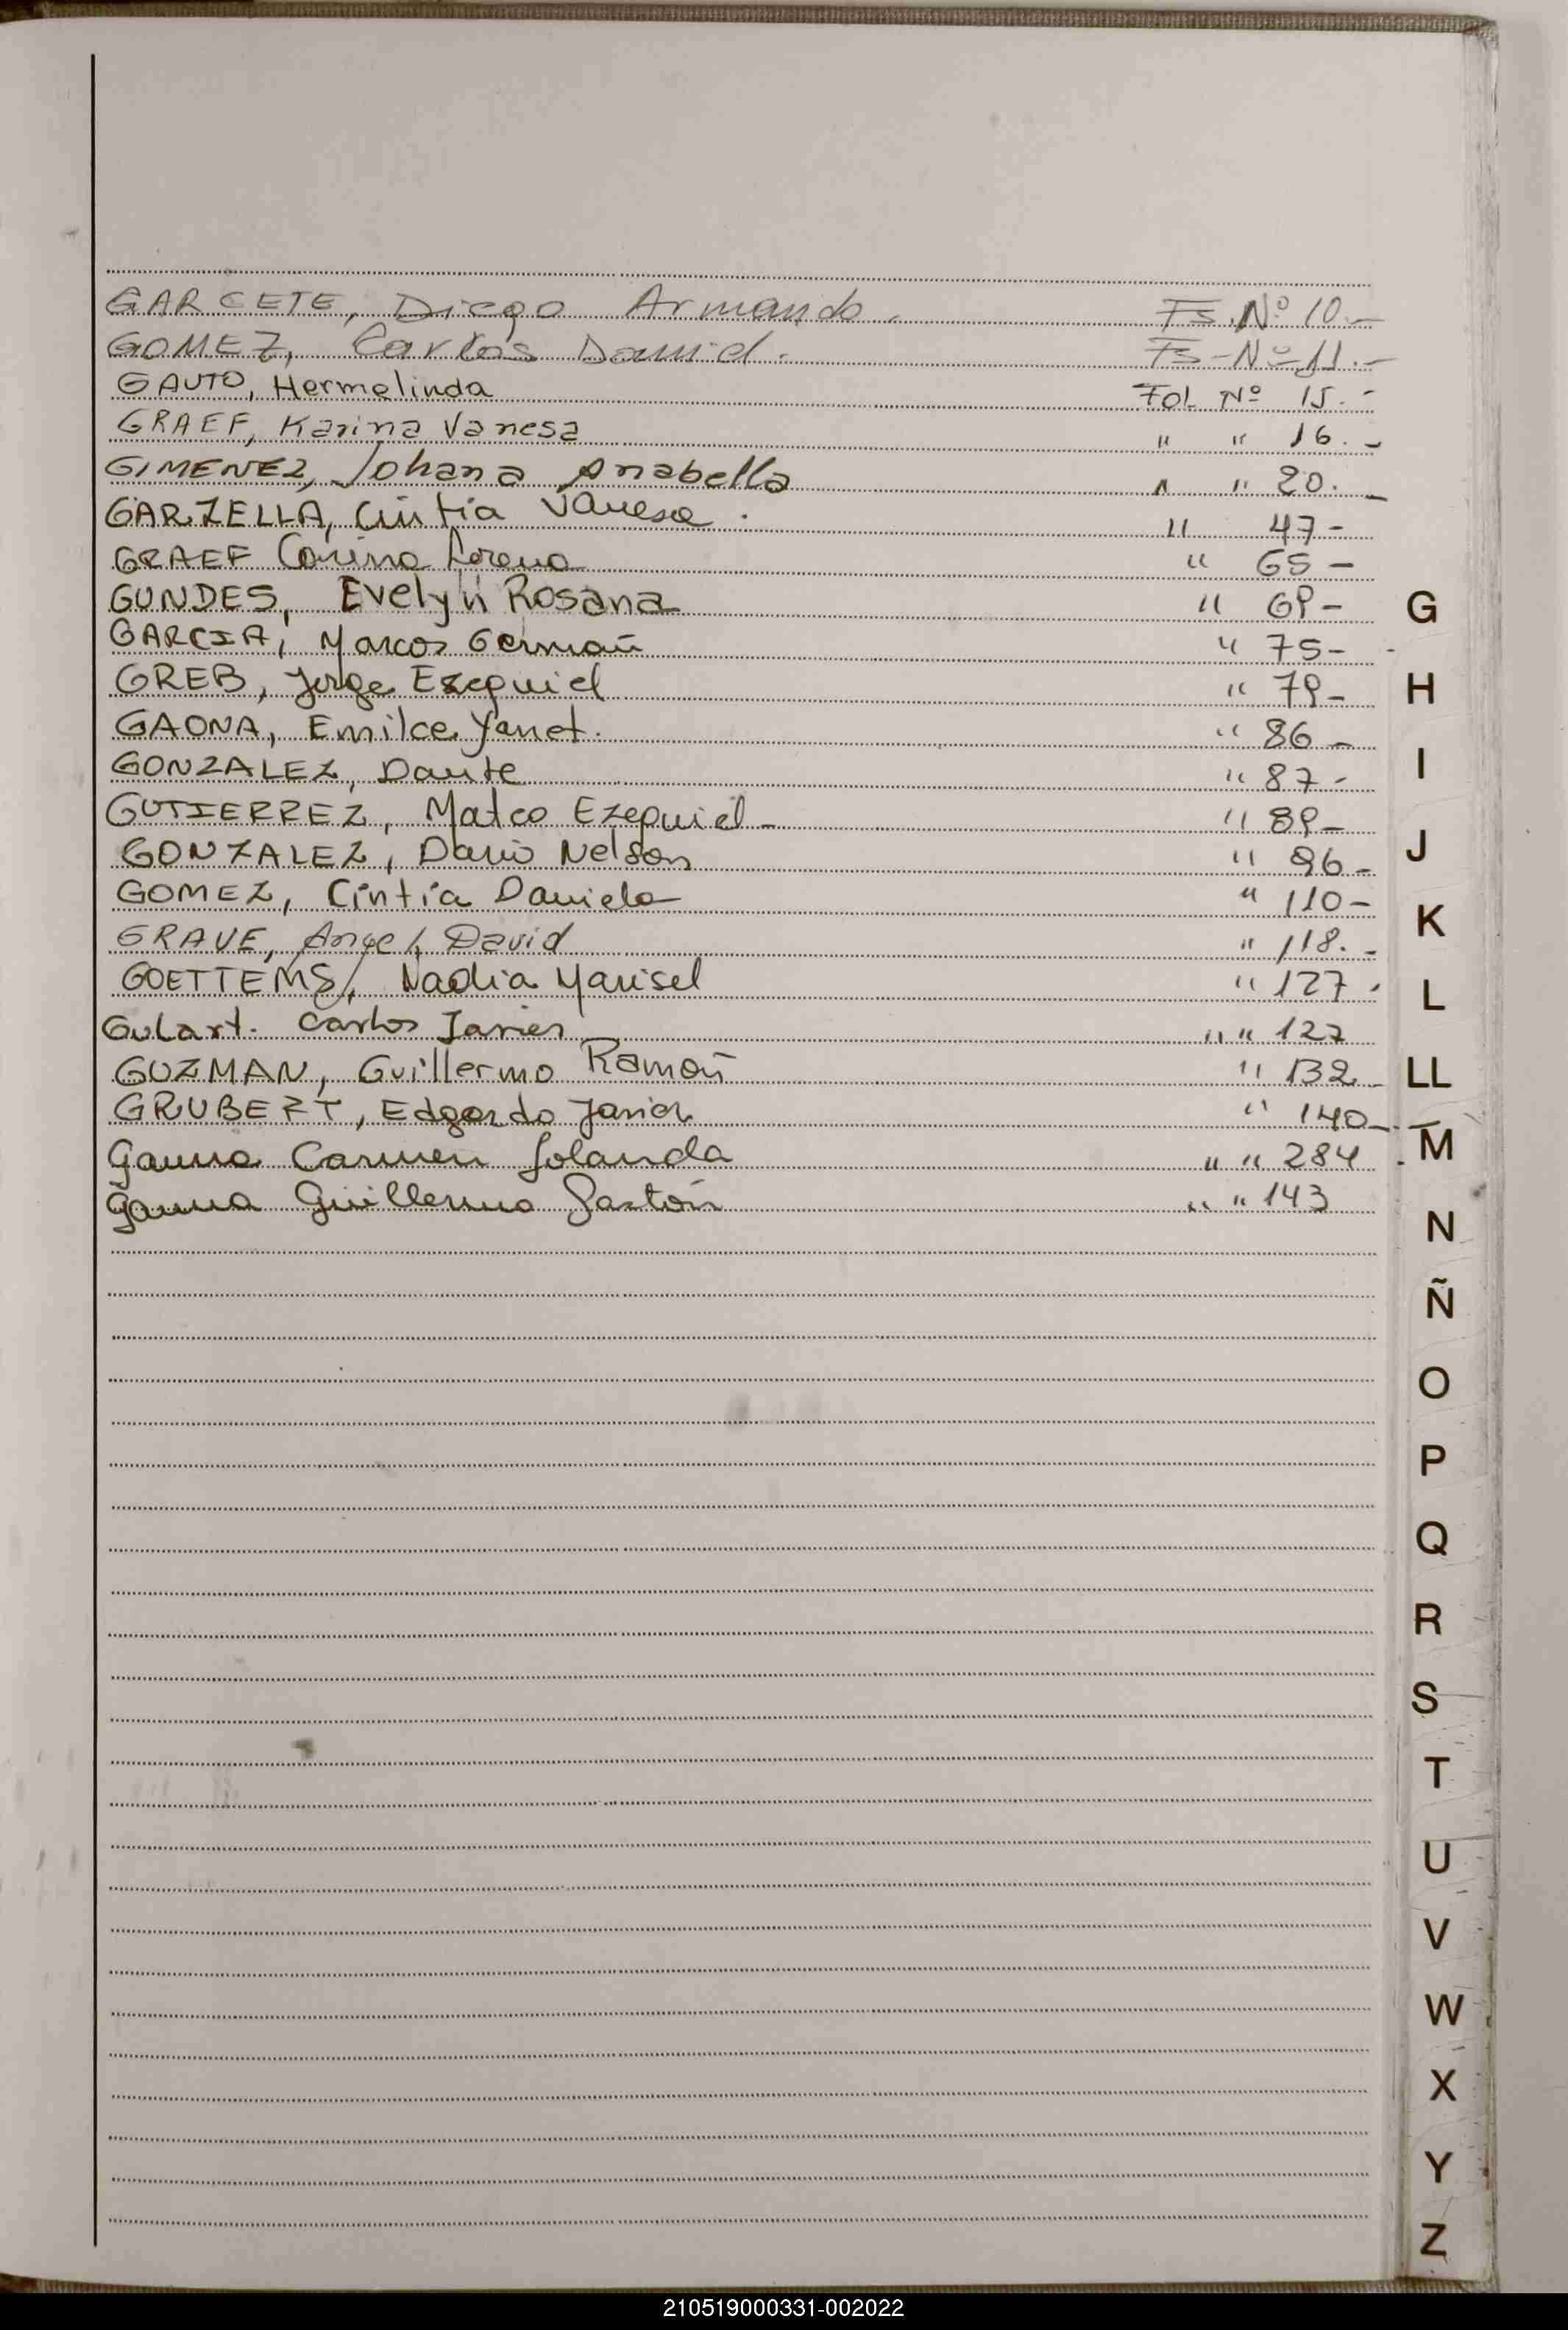 GARCETE, Diego Armando. Fs. Nº 10.-
GOMEZ, Carlos Daniel. Fs-Nº 11.-
GAUTO, Hermelinda Fol Nº 15.-
GRAEF, Karina Vanesa " " 16.-
GIMENEZ, Johana Anabella " " 20.-
GARZELLA, Cintia Vanesa. " 47-
GRAEF Carina Lorena " 65-
GUNDES, Evelyn Rosana " 69-
GARCIA, Marcos Germán " 75-
GREB, Jorge Ezequiel " 79-
GAONA, Emilce Yanet. " 86-
GONZALEZ, Dante " 87-
GUTIERREZ, Mateo Ezequiel- " 89-
GONZALEZ, Dario Nelson " 96-
GOMEZ, Cintia Daniela " 110-
GRAVE, Angel, David " 118.-
GOETTEMS, Nadia Marisel " 127-
Gulart. Carlos Javier " " 127
GUZMAN, Guillermo Ramón " 132-
GRUBERT, Edgardo Javier " 140-
Gauna Carmen Yolanda " " 284
Gauna Guillermo Gastón " " 143
G
H
I
J
K
L
LL
M
N
Ñ
O
P
Q
R
S
T
U
V
W
X
Y
Z
210519000331-002022